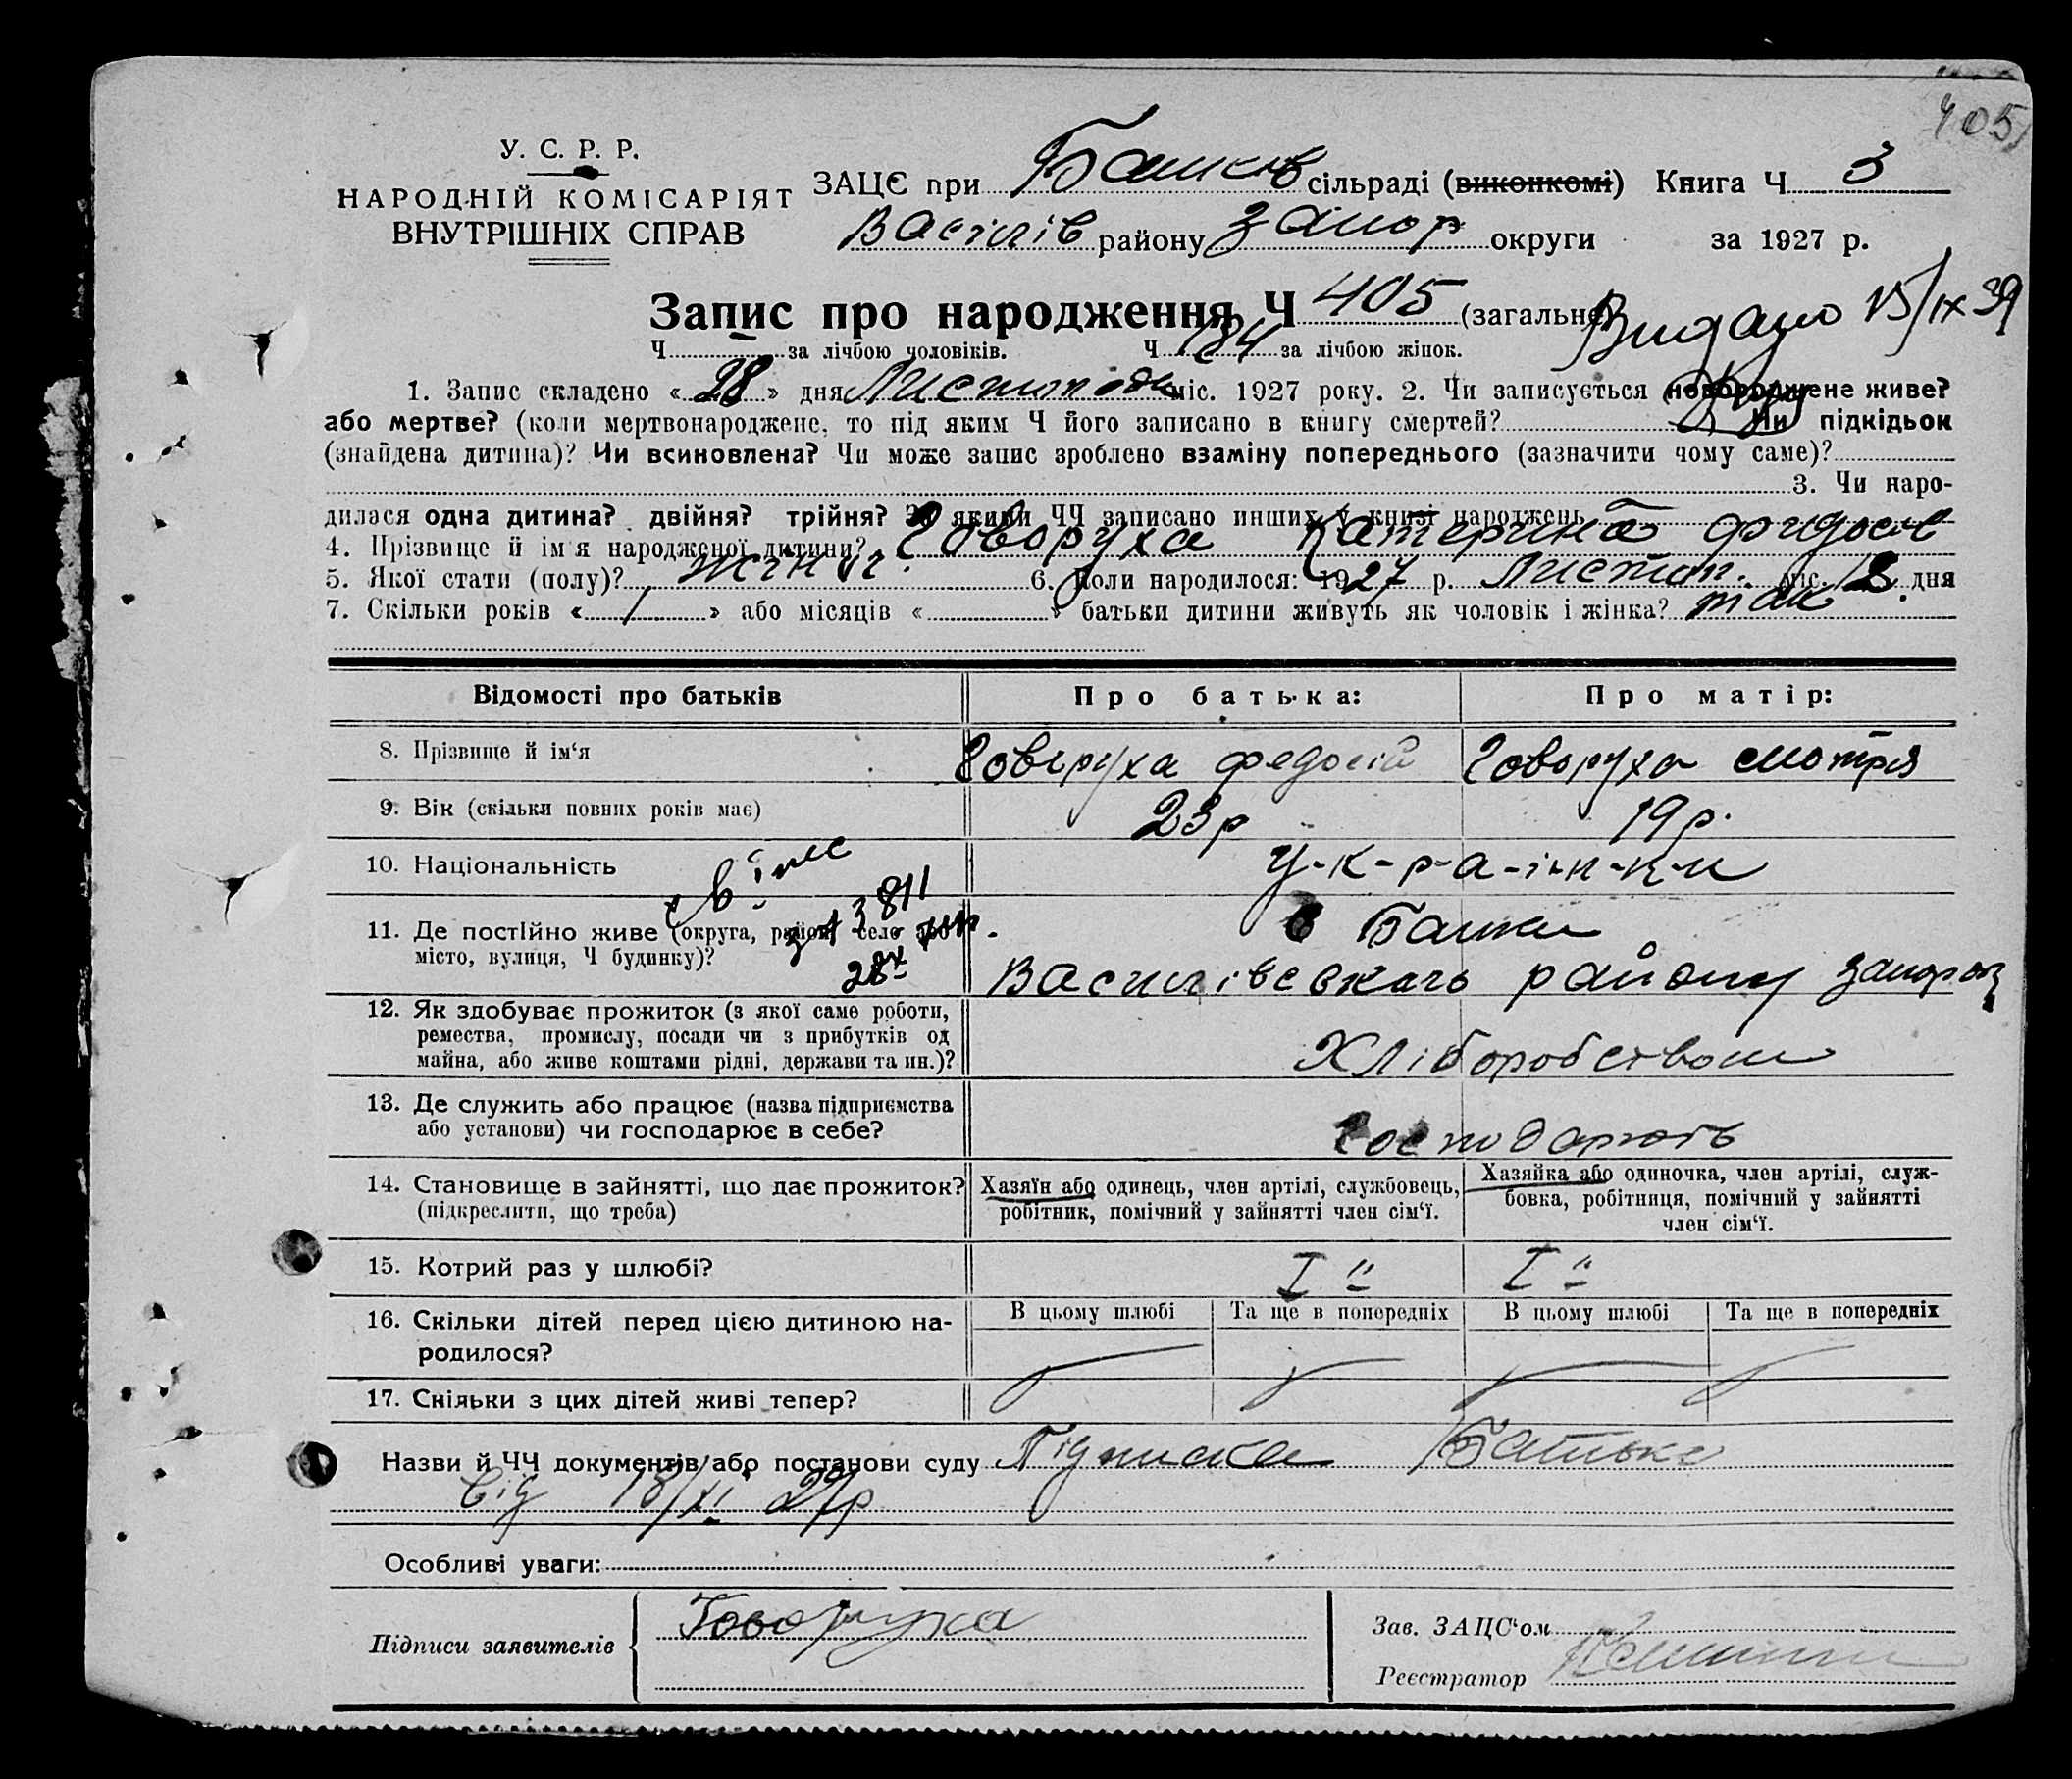 405
У. С. Р. Р.
НАРОДНІЙ КОМІСАРІЯТ
ВНУТРІШНІХ СПРАВ
ЗАЦС при сільраді (виконкомі) Книга Ч 3
Васілів району Запор округи за 1927 р.
Запис про народження Ч 405 (загальне)
Видано 15/IX 39
Ч за лічбою чоловіків. Ч 184 за лічбою жінок.
1. Запис складено «28» дня Листопода міс. 1927 року. 2. Чи записується новороджене живе?
або мертве? (коли мертвонароджене, то під яким Ч його записано в книгу смертей? Чи підкідьок
(знайдена дитина)? Чи всиновлена? Чи може запис зроблено взаміну попереднього (зазначити чому саме)?
3. Чи наро-
дилася одна дитина? двійня? трійня? За якими ЧЧ записано инших у книзі народжень
4. Прізвище й ім'я народженої дитини? Говоруха Катерина Фидосів
5. Якої стати (полу)? 6. Коли народилося: 1927 р. Листоп. міс. дня
7. Скільки років « / » або місяців « » батьки дитини живуть як чоловік і жінка? так
Відомості про батьків Про батька: Про матір:
8. Прізвище й ім'я Говоруха Федосій Говоруха Мотря
9. Вік (скільки повних років має) 23 р 19 р.
10. Національність У-к-р-а-ї-н-ц-и
11. Де постійно живе (округа, район, село або
місто, вулиця, Ч будинку)?
3811
28
Василівського району Запороз
12. Як здобуває прожиток (з якої саме роботи,
ремества, промислу, посади чи з прибутків од
майна, або живе коштами рідні, держави та ин.)?
Хліборобством
13. Де служить або працює (назва підприємства
або установи) чи господарює в себе?
Господарють
14. Становище в зайнятті, що дає прожиток?
(підкреслити, що треба)
Хазяїн або одинець, член артілі, службовець,
робітник, помічний у зайнятті член сім'ї.
Хазяйка або одиночка, член артілі, служ-
бовка, робітниця, помічний у зайнятті
член сім'ї.
15. Котрий раз у шлюбі? I " I "
16. Скільки дітей перед цією дитиною на-
родилося?
В цьому шлюбі Та ще в попередніх В цьому шлюбі Та ще в попередніх
17. Скільки з цих дітей живі тепер?
Назви й ЧЧ документів або постанови суду Підписка Батька
Від 18/XI 27р
Особливі уваги:
Підписи заявителів Говоруха
Зав. ЗАЦС'ом
Реєстратор